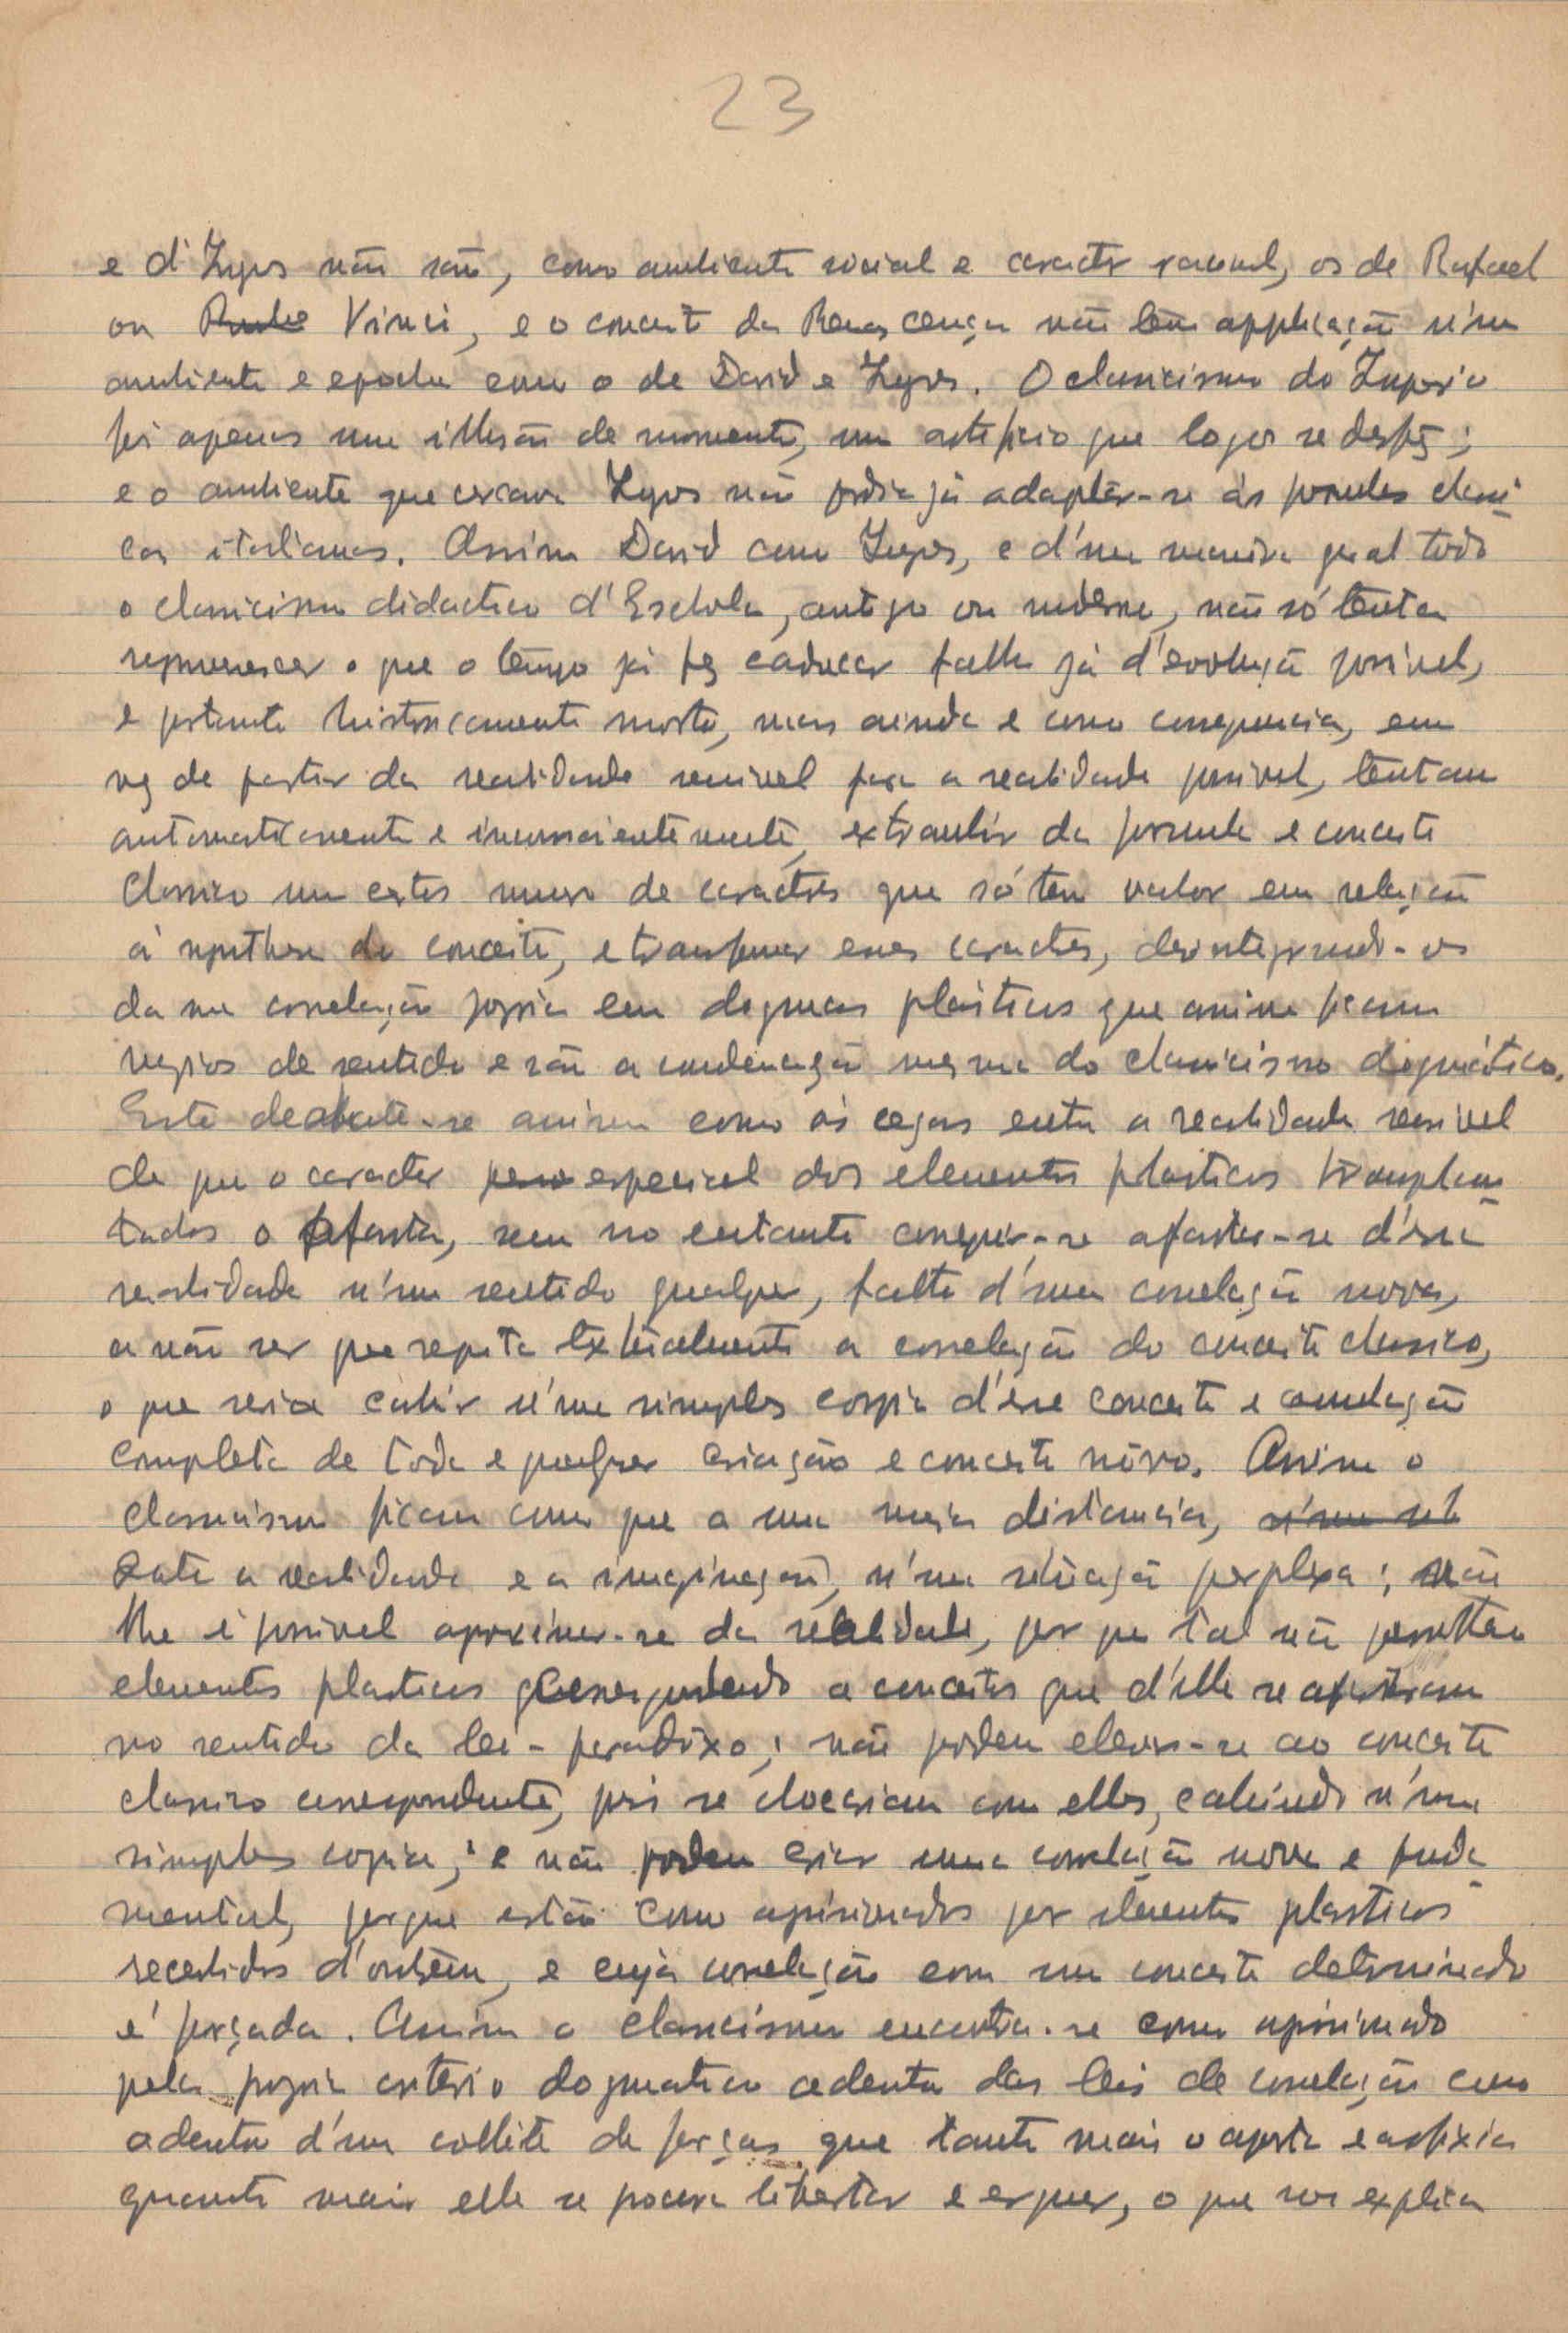 23
e d'Ingres não são, como ambiente social e caracter racional, os de Rafael
ou Vinci, e o conceito da Renascença não tem applicação n'um
ambiente e epocha como o de David e Ingres. O classicismo do Imperio
foi apenas uma illusão de momento, um artificio que logo se desfez;
e o ambiente que cercava Ingres não podia já adaptar-se ás formulas classi-
cas italianas. Assim David como Ingres, e d'uma maneira geral todo
o classicismo didactico d'Eschola, antigo ou moderno, não só tenta
o que o tempo já fez caducar falho já d'evolução possivel,
e portanto historicamente morto, mas ainda e como consequencia, em
vez de partir da realidade sensivel para a realidade possivel, tentam
automaticamente e inconscientemente, extrahir da formula e conceito
classico um certo numero de caractéres que só tem valor em relação
á synthese do conceito, e transformar esses caractéres, desintegrando-os
da sua correlação propria em dogmas plasticos que assim ficam
vazios de sentido e são a condenação mesma do classicismo dogmático.
Este debate-se assim como ás cegas entre a realidade sensivel
de que o caracter especial dos elementos plasticos transplan-
tados o afasta, sem no entanto conseguir-se afastar-se d'essa
realidade n'um sentido qualquer, falto d'uma correlação nova,
a não ser que repita textualmente a correlação do conceito classico,
o que seria cahir n'uma simples copia d'esse conceito e anulação
completa de toda e qualquer criação e conceito nóvo. Assim o
classicismo ficam como que a uma meia distancia,
entre a realidade e a imaginação, n'uma situação perplexa; não
lhe é possivel aproximar-se da realidade, por que tal não permittem
elementos plasticos correspondendo a conceitos que d'elle se afastaram
no sentido da lei-paradoxo; não podem elevar-se ao conceito
classico correspondente, pois se chocariam com elles, cahindo n'uma
simples copia; e não podem criar uma correlação nova e funda-
mental, porque estão como aprisionados por elementos plasticos
recebidos d'outrem, e cuja correlação com um conceito determinado
é forçada. Assim o classicismo encontra-se como aprisionado
pelo proprio criterio dogmatico adentro das leis de correlação como
adentro d'um collete de forças que tanto mais o aperta e asfixia
quanto mais elle se procura libertar e erguer, o que nos explica